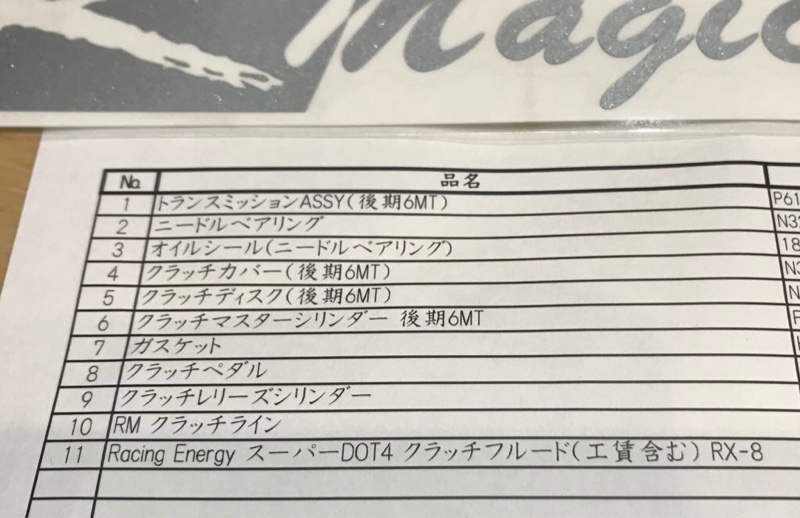 Magic
No. 品名
1 トランスミッションASSY(後期6MT) P61
2 ニードルベアリング N3
3 オイルシール(ニードルベアリング) 18
4 クラッチカバー(後期6MT) N3
5 クラッチディスク(後期6MT) N
6 クラッチマスターシリンダー 後期6MT F
7 ガスケット
8 クラッチペダル
9 クラッチレリーズシリンダー
10 RM クラッチライン
11 Racing Energy スーパーDOT4 クラッチフルード(工賃含む) RX-8